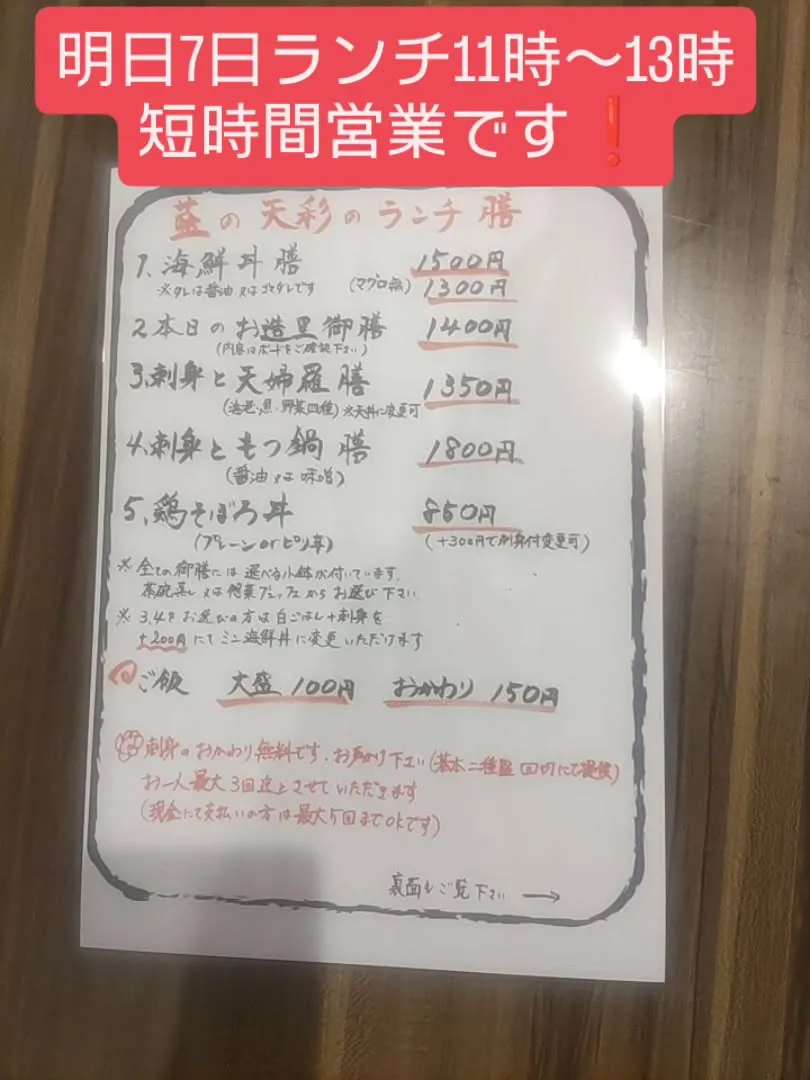 明日7日ランチ11時〜13時
短時間営業です❗
の天彩のランチ膳
1、海鮮丼膳 1500円
※タレは醤油又はゴマダレです (マグロ無) 1300円
2.本日のお造里御膳 1400円
(内容はボードをご確認下さい)
3.刺身と天婦羅膳 1350円
(海老・魚・野菜四種)※天丼に変更可
4.刺身ともつ鍋膳 1800円
(醤油又は味噌)
5、鶏そぼろ丼 850円
(プレーンorピリ辛) (+300円で刺身付変更可)
※全ての御膳には選べる小鉢が付いています.
茶碗蒸し又は惣菜ブュッフェからお選び下さい
※3,4をお選びの方は白ごはん+刺身を
+200円にてミニ海鮮丼に変更いただけます
ご飯 大盛 100円 おかわり 150円
刺身のおかわり無料です.お声かけ下さい(基本二種盛 回切にて提供)
お一人最大3回迄とさせていただきます
(現金にて支払いの方は最大5回までOKです)
裏面もご覧下さい →